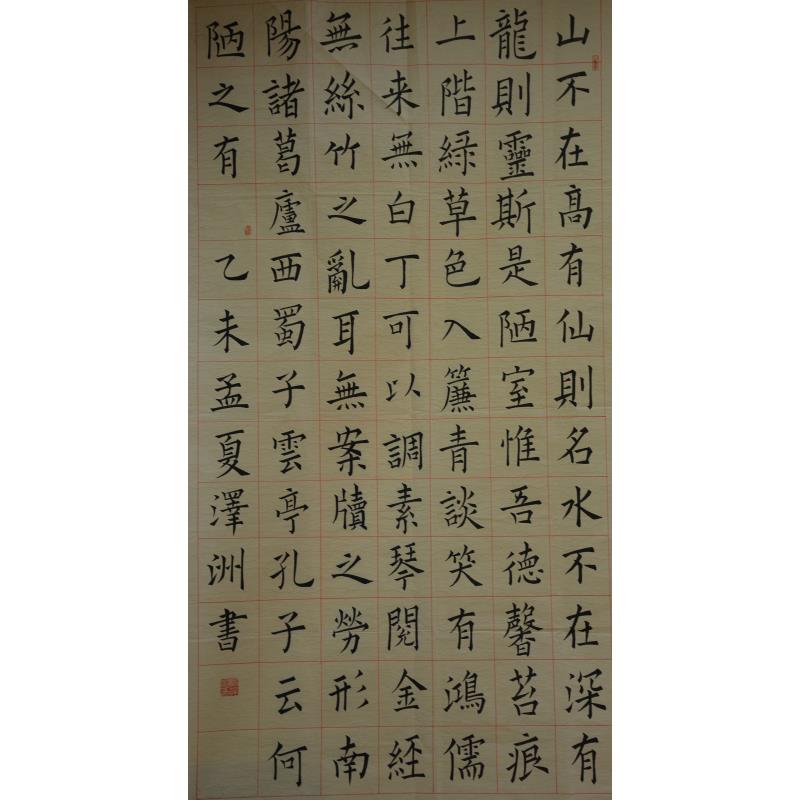 山不在高有仙則名水不在深有
龍則靈斯是陋室惟吾德馨苔痕
上階緑草色入簾青談笑有鴻儒
往来無白丁可以調素琴閱金經
無絲竹之亂耳無案牘之勞形南
陽諸葛廬西蜀子雲亭孔子云何
陋之有 乙未孟夏澤洲書